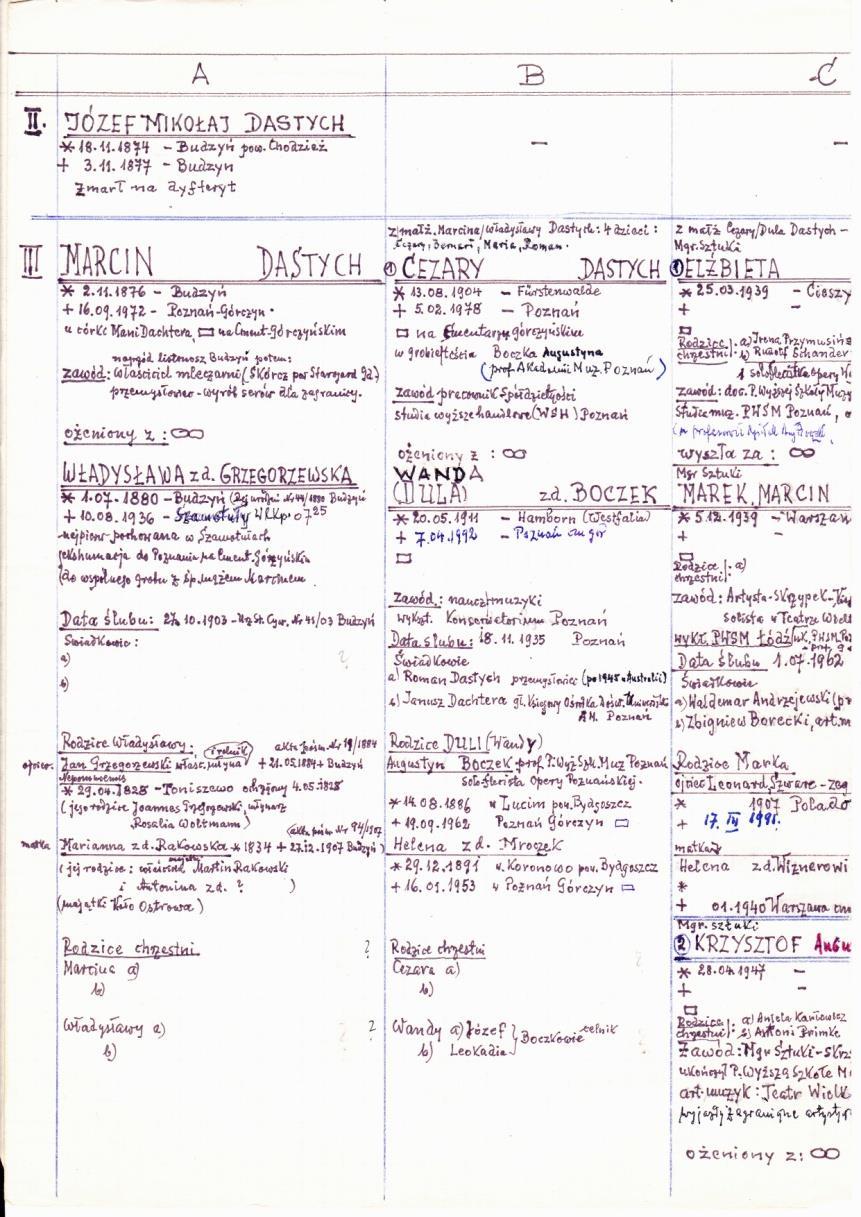 A
B
C
II.
JÓZEF MIKOŁAJ DASTYCH
* 18.11.1874 - Budzyń pow. Chodzież
+ 3.11.1877 - Budzyń
Zmarł na dyfteryt
-
-
III
MARCIN DASTYCH
* 2.11.1876 - Budzyń
+ 16.09.1972 - Poznań-Górczyn.
u córki Mani Dachtera, na Cment. Górczyńskim
listonosz Budzyń potem:
zawód: właściciel mleczarni (Skórcz par Starogard Gd.)
przemysłowo - wyrób serów dla zagranicy.
ożeniony z : ∞
WŁADYSŁAWA zd. GRZEGORZEWSKA
* 1.07.1880 - Budzyń (Rej. urodzin Nr 44/1880 Budzyń
+ 10.08.1936 - Szamotuły Wlkp. 07 25
najpierw pochowana w Szamotułach
ekshumacja do Poznania na Cment. Górczyńskim
(do wspólnego grobu z śp. mężem Marcinem
Data ślubu: 27.10.1903 - Urz. St. Cyw. Nr 41/03 Budzyń
Świadkowie:
a) ?
b)
Rodzice Władysławy: (i rolnik) akta
ojciec. Jan Grzegorzewski właśc. młyna + 21.05.1884 Budzyń
Nepomucenus
* 29.04.1828 - Toniszewo ochrzcony 4.05.1828
(jego rodzice Joannes Grzegorzewski, młynarz
Rosalia Woltmann)
(akta Nr 94/1907
matka Marianna zd. Rakowska * 1834 + 27.12.1907 Budzyń)
(jej rodzice: właściciel Martin Rakowski
i Antonina zd. ? )
(majątki Koło Ostrowa)
Rodzice chrzestni ?
Marcina a)
b)
Władysławy a) ?
b)
z małż. Marcina/Władysławy Dastych: 4 dzieci:
Cezary, Bernard, Maria, Roman.
① CEZARY DASTYCH
* 13.08.1904 - Fürstenwalde
+ 5.02.1978 - Poznań
na Cmentarzu górczyńskim
w grobie teścia Boczka Augustyna
(prof. Akademii Muz. Poznań)
zawód pracownik Spółdzielczości
studia wyższe handlowe (WSH) Poznań
ożeniony z : ∞
WANDA
(DULA) zd. BOCZEK
* 20.05.1911 - Hamborn (Westfalia)
+ 7.04.1992 - Poznań
zawód: naucz. muzyki
wykszt. Konserwatorium Poznań
Data ślubu: 18.11.1935 Poznań
Świadkowie
a) Roman Dastych przemysłowiec (po 1945 - Australii)
b) Janusz Dachtera gł. Księgowy Ośrodka
A.M. Poznań
Rodzice DULI (Wandy)
Augustyn Boczek prof. P. Wyż. Szk. Muz Poznań
solo flecista Opery Poznańskiej.
* 14.08.1886 w Lucim pow. Bydgoszcz
+ 19.09.1962 Poznań Górczyn
Helena zd. Mroczek
* 29.12.1891 w. Koronowo pow. Bydgoszcz
+ 16.01.1953 w Poznań Górczyn
Rodzice chrzestni
Cezara a)
b)
Wandy a) Józef
b) Leokadia } Boczkowie
z małż Cezary/Dula Dastych -
Mgr. Sztuki
① ELŻBIETA
* 25.03.1939 - Cieszy
+ -
Rodzice chrzestni: a) Irena Przymusińs
b) Rudolf Schander
1 solo flecista opery W
zawód: doc. P. Wyższej Szkoły Muzy
Studia muz. PWSM Poznań,
wyszła za : ∞
Mgr Sztuki
MAREK, MARCIN
* 5.12.1939 - Warszaw
+ -
Rodzice chrzestni: a)
zawód: Artysta-Skrzypek-
solista w Teatrze Wiel
wykł. PWSM Łódź
Data ślubu 1.07.1962
Świadkowie
a) Waldemar Andrzejewski (pr
b) Zbigniew Borecki, art. m
Rodzice Marka
ojciec Leonard, Szwarc - zeg
* 1907
+ 17. IV 1991.
matka
Helena zd. Wiznerowi
*
+ 01.1940 Warszawa
Mgr. sztuki
② KRZYSZTOF Augu
* 28.04.1947 -
+ -
Rodzice chrzestni: a) Aniela Kaniewicz
b) Antoni Brimke
Zawód: Mgr Sztuki - Skrz
ukończył P. Wyższą Szkołę M
art. muzyk: Teatr Wielk
wyjazdy zagraniczne artysty
ożeniony z: ∞